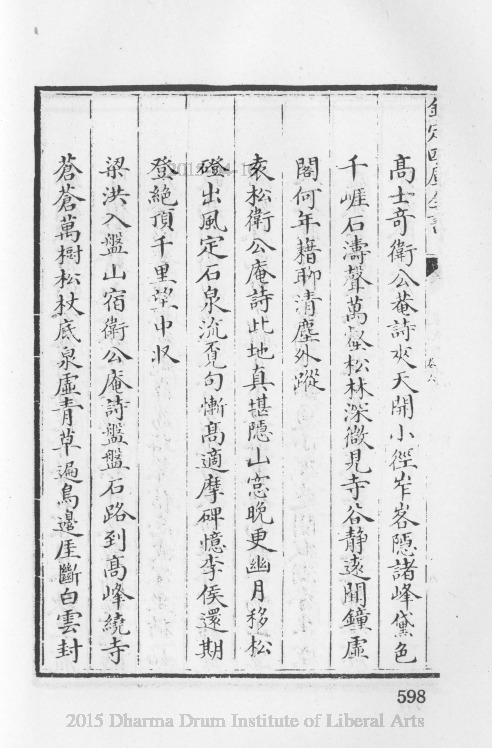 欽定四庫全書
卷八
高士奇衛公菴詩夾天開小徑岝峉隠諸峰黛色
千崖石濤聲萬壑松林深微見寺谷静遠聞鐘虚
閣何年藉聊清塵外蹤
袁松衛公庵詩此地真堪隠山窓晚更幽月移松
磴出風定石泉流覔句慚高適摩碑憶李侯還期
登絶頂千里望中収
梁洪入盤山宿衛公庵詩盤盤石路到高峰繞寺
蒼蒼萬樹松杖底泉虚青草遍鳥邊厓斷白雲封
598
2015 Dharma Drum Institute of Liberal Arts